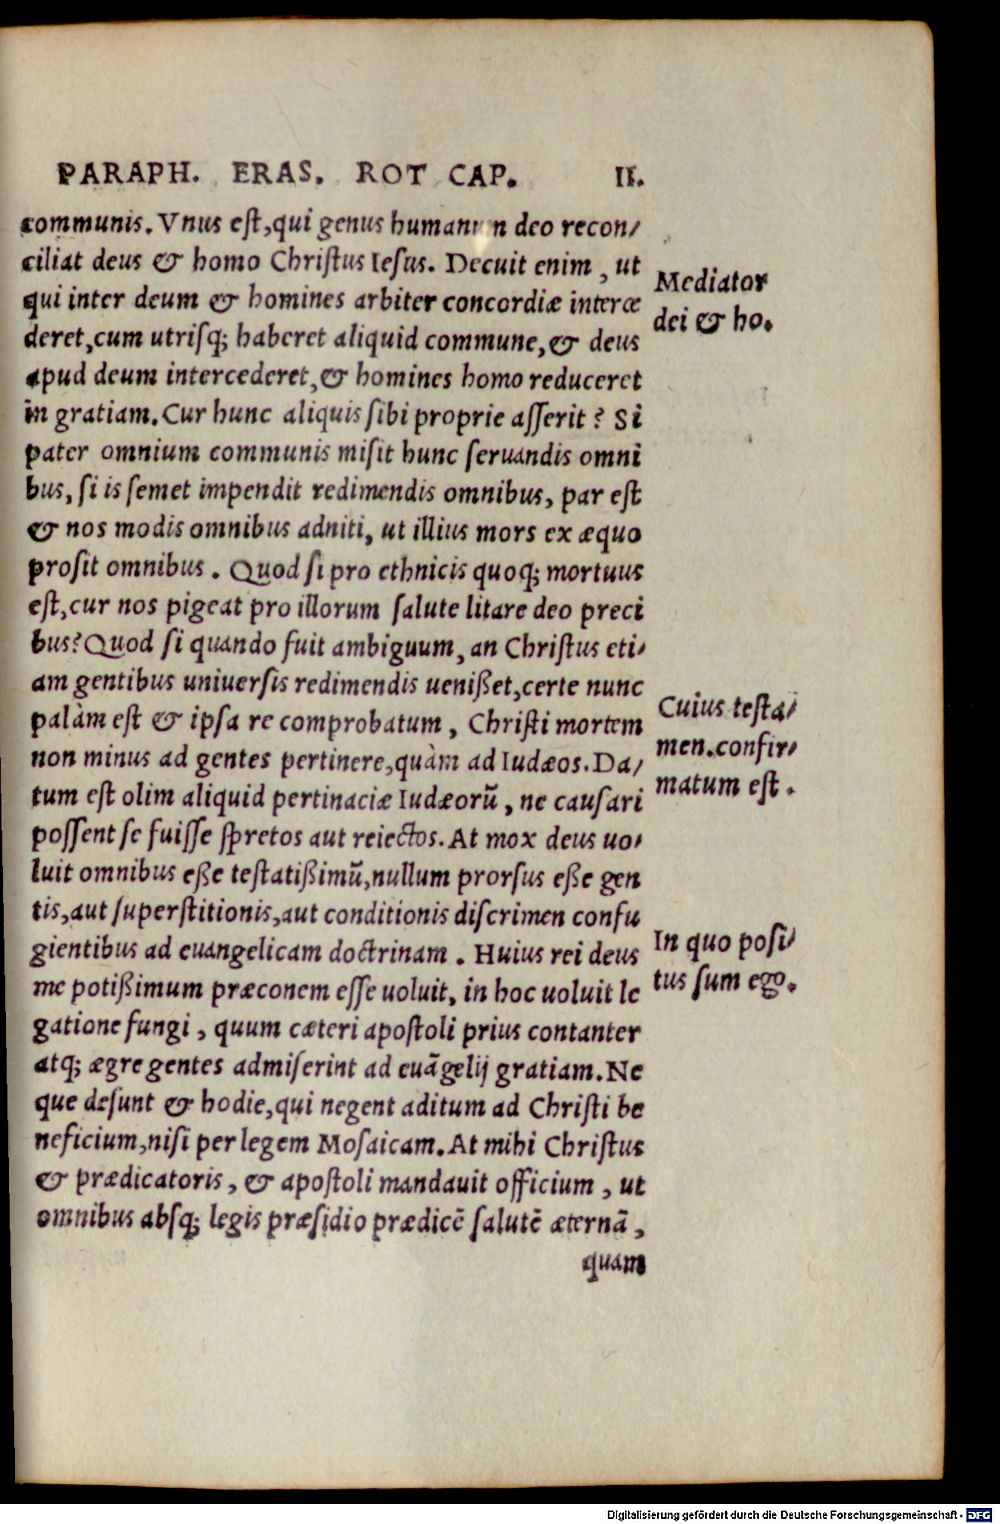 PARAPH. ERAS. ROT CAP. II.
communis. Vnus est, qui genus humanum deo recon/
ciliat deus & homo Christus Iesus. Decuit enim, ut
qui inter deum & homines arbiter concordiæ interce
deret, cum utrisq; haberet aliquid commune, & deus
apud deum intercederet, & homines homo reduceret
in gratiam. Cur hunc aliquis sibi proprie asserit? Si
pater omnium communis misit hunc seruandis omni
bus, si is semet impendit redimendis omnibus, par est
& nos modis omnibus adniti, ut illius mors ex æquo
prosit omnibus. Quod si pro ethnicis quoq; mortuus
est, cur nos pigeat pro illorum salute litare deo preci
bus? Quod si quando fuit ambiguum, an Christus eti/
am gentibus uniuersis redimendis uenißet, certe nunc
palàm est & ipsa re comprobatum, Christi mortem
non minus ad gentes pertinere, quàm ad Iudæos. Da/
tum est olim aliquid pertinaciæ Iudæorũ, ne causari
possent se fuisse spretos aut reiectos. At mox deus uo/
luit omnibus eße testatißimũ, nullum prorsus eße gen
tis, aut superstitionis, aut conditionis discrimen confu
gientibus ad euangelicam doctrinam. Huius rei deus
me potißimum præconem esse uoluit, in hoc uoluit le
gatione fungi, quum cæteri apostoli prius contanter
atq; ægre gentes admiserint ad euãgelij gratiam. Ne
que desunt & hodie, qui negent aditum ad Christi be
neficium, nisi per legem Mosaicam. At mihi Christus
& prædicatoris, & apostoli mandauit officium, ut
omnibus absq; legis præsidio prædicẽ salutẽ æternã,
quam
Mediator
dei & ho.
Cuius testa/
men. confir/
matum est.
In quo posi/
tus sum ego.
Digitalisierung gefördert durch die Deutsche Forschungsgemeinschaft - DFG